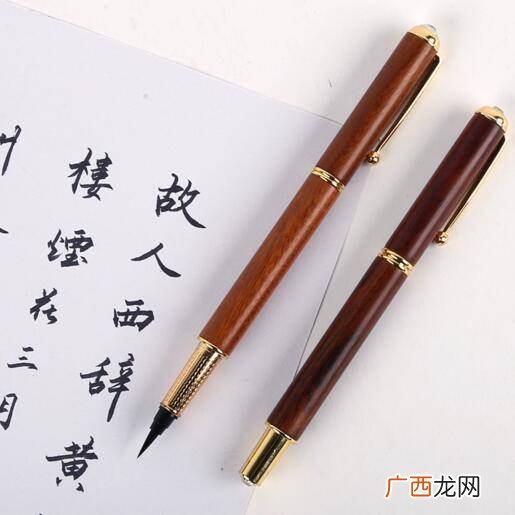 故人西辞黄
樓煙花三月
广西龙网